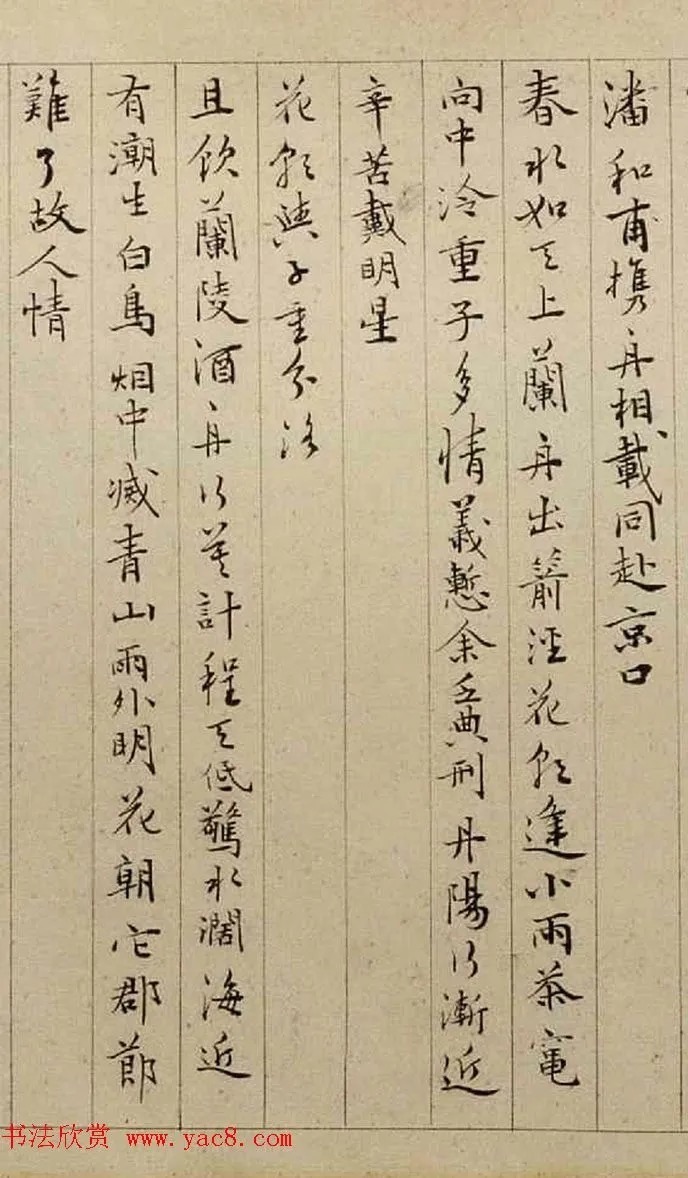 潘和甫攜舟相載同赴京口
春水如天上蘭舟出箭涇花朝逢小雨茶竈
向中泠重子多情義慙余乏典刑丹陽行漸近
辛苦戴明星
花朝與子重分韻
且飲蘭陵酒舟行莫計程天低驚水濶海近
有潮生白鳥烟中滅青山雨外明花朝它郡節
難了故人情
书法欣赏 www.yac8.com